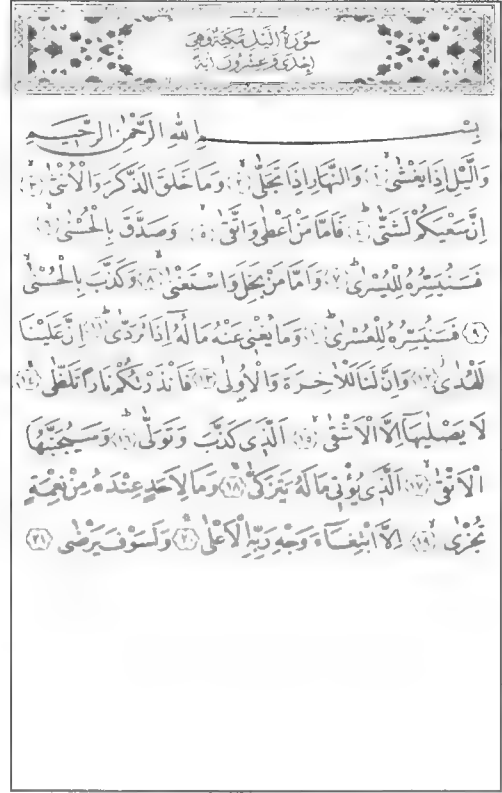 سُورَةُ الَّيْلِ مَكِّيَّةٌ وَهِيَ
اِحْدٰى وَعِشْرُونَ اٰيَةً
بِسْــــــــمِ اللّٰهِ الرَّحْمٰنِ الرَّحِيـمِ
وَالَّيْلِ اِذَا يَغْشٰىۙ ﴿١﴾ وَالنَّهَارِ اِذَا تَجَلّٰىۙ ﴿٢﴾ وَمَا خَلَقَ الذَّكَرَ وَالْاُنْثٰىۙ ﴿٣﴾
اِنَّ سَعْيَكُمْ لَشَتّٰىۜ ﴿٤﴾ فَاَمَّا مَنْ اَعْطٰى وَاتَّقٰىۙ ﴿٥﴾ وَصَدَّقَ بِالْحُسْنٰىۙ ﴿٦﴾
فَسَنُيَسِّرُهُ لِلْيُسْرٰىۜ ﴿٧﴾ وَاَمَّا مَنْ بَخِلَ وَاسْتَغْنٰىۙ ﴿٨﴾ وَكَذَّبَ بِالْحُسْنٰىۙ
﴿٩﴾ فَسَنُيَسِّرُهُ لِلْعُسْرٰىۜ ﴿١٠﴾ وَمَا يُغْنٖي عَنْهُ مَالُهُٓ اِذَا تَرَدّٰىۜ ﴿١١﴾ اِنَّ عَلَيْنَا
لَلْهُدٰىۘ ﴿١٢﴾ وَاِنَّ لَنَا لَلْاٰخِرَةَ وَالْاُو۫لٰى ﴿١٣﴾ فَاَنْذَرْتُكُمْ نَاراً تَلَظّٰىۚ ﴿١٤﴾
لَا يَصْلٰيهَٓا اِلَّا الْاَشْقٰىۙ ﴿١٥﴾ اَلَّذٖي كَذَّبَ وَتَوَلّٰىۜ ﴿١٦﴾ وَسَيُجَنَّبُهَا
الْاَتْقٰىۙ ﴿١٧﴾ اَلَّذٖي يُؤْتٖي مَالَهُ يَتَزَكّٰىۚ ﴿١٨﴾ وَمَا لِاَحَدٍ عِنْدَهُ مِنْ نِعْمَةٍ
تُجْزٰىۙ ﴿١٩﴾ اِلَّا ابْتِغَٓاءَ وَجْهِ رَبِّهِ الْاَعْلٰىۚ ﴿٢٠﴾ وَلَسَوْفَ يَرْضٰى ﴿٢١﴾